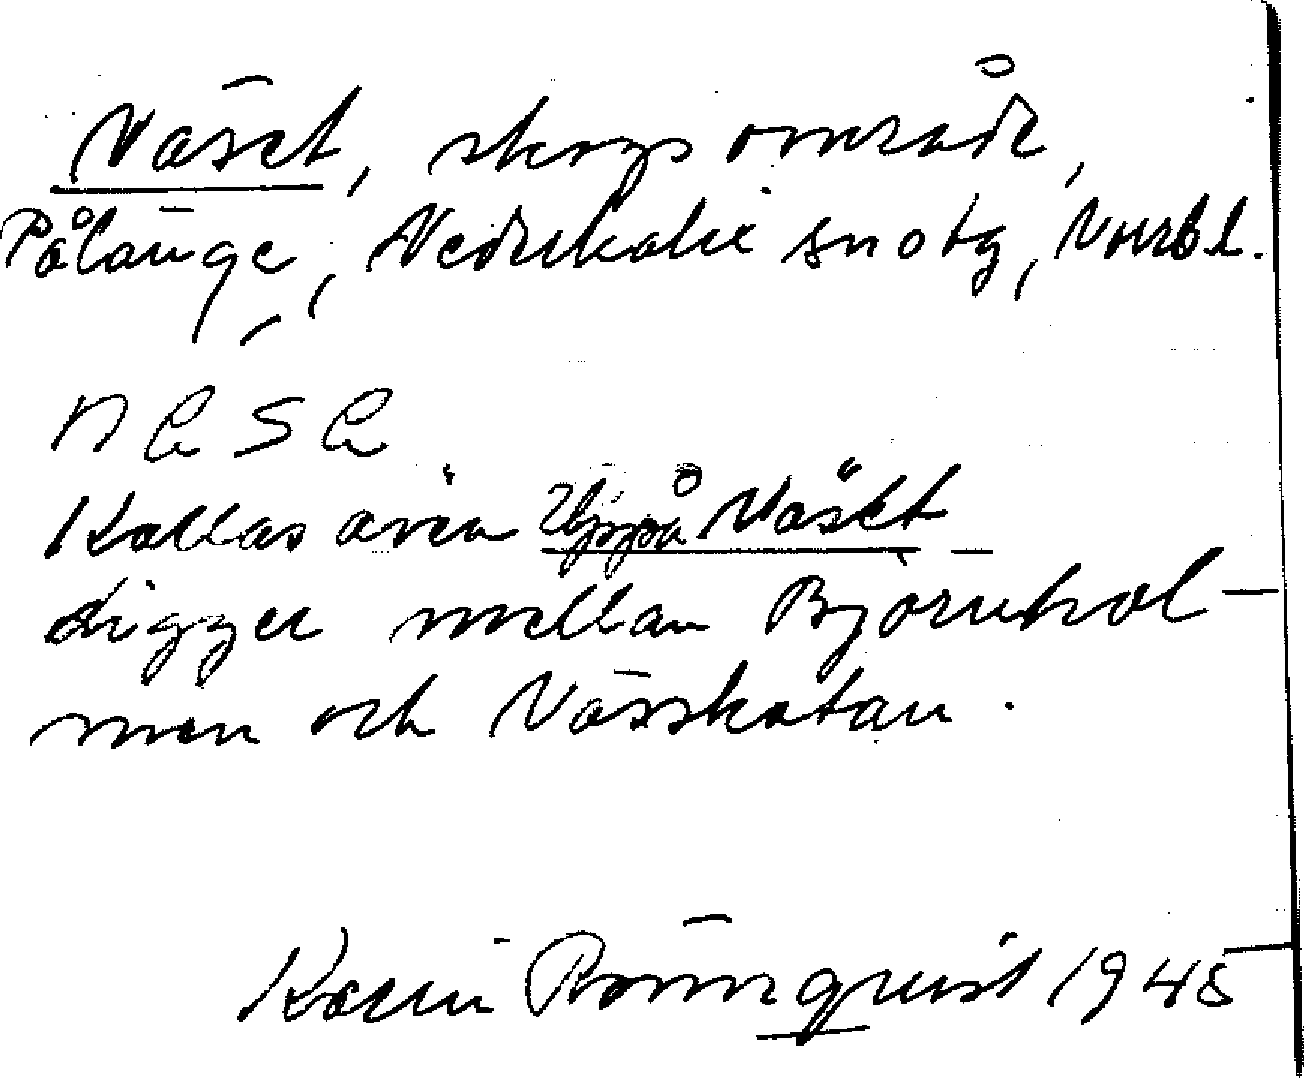 Näset, skogsområde,
Pålänge, Nederkalix sn o tg, Norrb l.
Kallas även Uppå Näset
Ligger mellan Björnhol-
men och Nässkatan.
Karin Rönnquist 1945